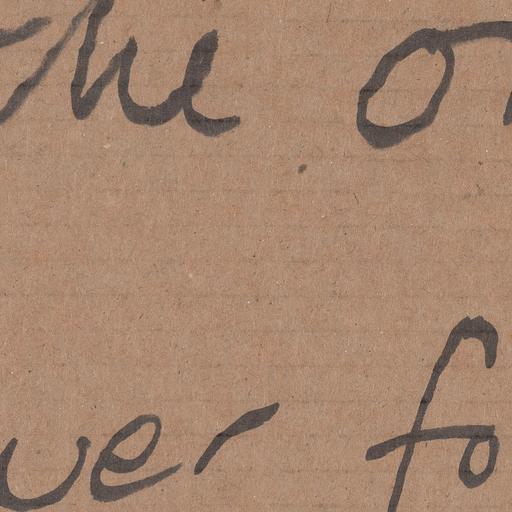 the o
ver fo